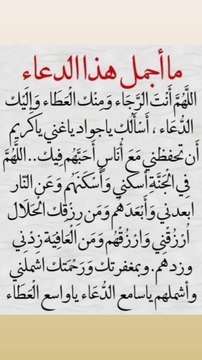 ما أجمل هذا الدعاء
اللَّهُمَّ أَنتَ الرَّجَاء وَمِنْكَ الْعَطَاء وَإِلَيْكَ
الدُّعَاء ، أَسْأَلُكَ ياجواد ياغني ياكريم
أَن تحفظني مَعَ أُنَاسٍ أَحَبَّهُم فِيكَ..اللَّهُمَّ
في الْجَنَّةِ أسكني وَأَسْكَنَهُم وَعَنِ النَّار
ابعدني وَأَبْعَدَهُم وَمَن رِزْقِكَ الْحَلَال
اُرْزُقْنِي وَارْزُقْهُم وَمَن الْعَافِيَة زِدْنِي
وزدهم.وبمغفرتك وَرَحْمَتك اشملني
وأشملهم ياسامع الدُّعَاء ياواسع الْعَطَاء